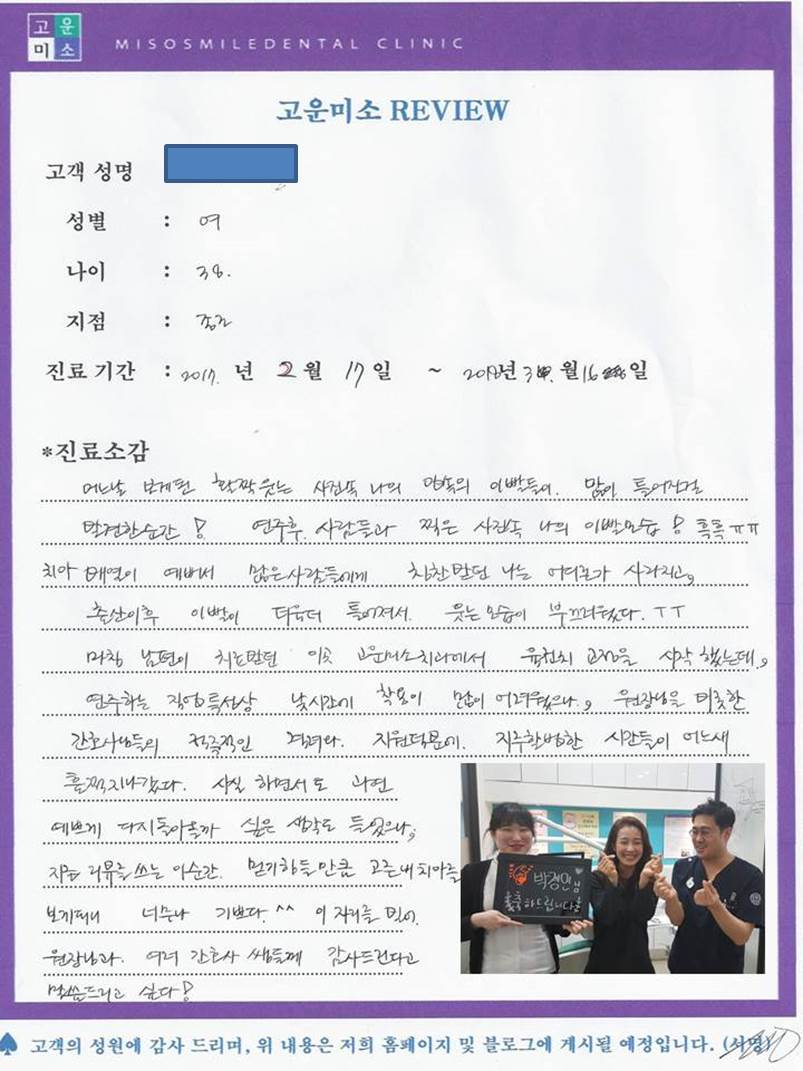 고운
미소
MISOSMILEDENTAL CLINIC
고운미소 REVIEW
고객 성명
성별 : 여
나이 : 38.
지점 :
진료 기간 : 2017. 년 2월 17일 ~ 2018년 3 월 16 일
*진료소감
어느날 보게된 활짝웃는 사진속 나의 앞쪽의 이빨들이. 많이 틀어진걸
발견한순간! 연주후. 사람들과 찍은 사진속 나의 이빨모습! 흑흑ㅠㅠ
치아 배열이 예뻐서 많은사람들에게 칭찬받던 나는 어디론가 사라지고,
출산이후 이빨이 더욱더 틀어져서. 웃는모습이 부끄러웠다. ㅜㅜ
마침 남편이 치료받던 이곳 고운미소치과에서 교정을 시작했는데,
연주하는 직업특성상 낮시간에 착용이 많이 어려웠으나, 원장님을 비롯한
간호사님들의 적극적인 격려와. 지원덕분에. 시간들이 어느새
훌쩍지나갔다. 사실 하면서도 과연
예쁘게 다시돌아올까 싶은 생각도 들었으나,
지금 리뷰를 쓰는 이순간. 믿기힘들만큼 고른 내 치아를
보게되니 너무나 기쁘다. ^^ 이 자리를 빌어.
원장님과. 여러 간호사 쌤들께 감사드린다고
말씀드리고 싶다!
박정민님
축하드립니다
고객의 성원에 감사 드리며, 위 내용은 저희 홈페이지 및 블로그에 게시될 예정입니다. (서명)